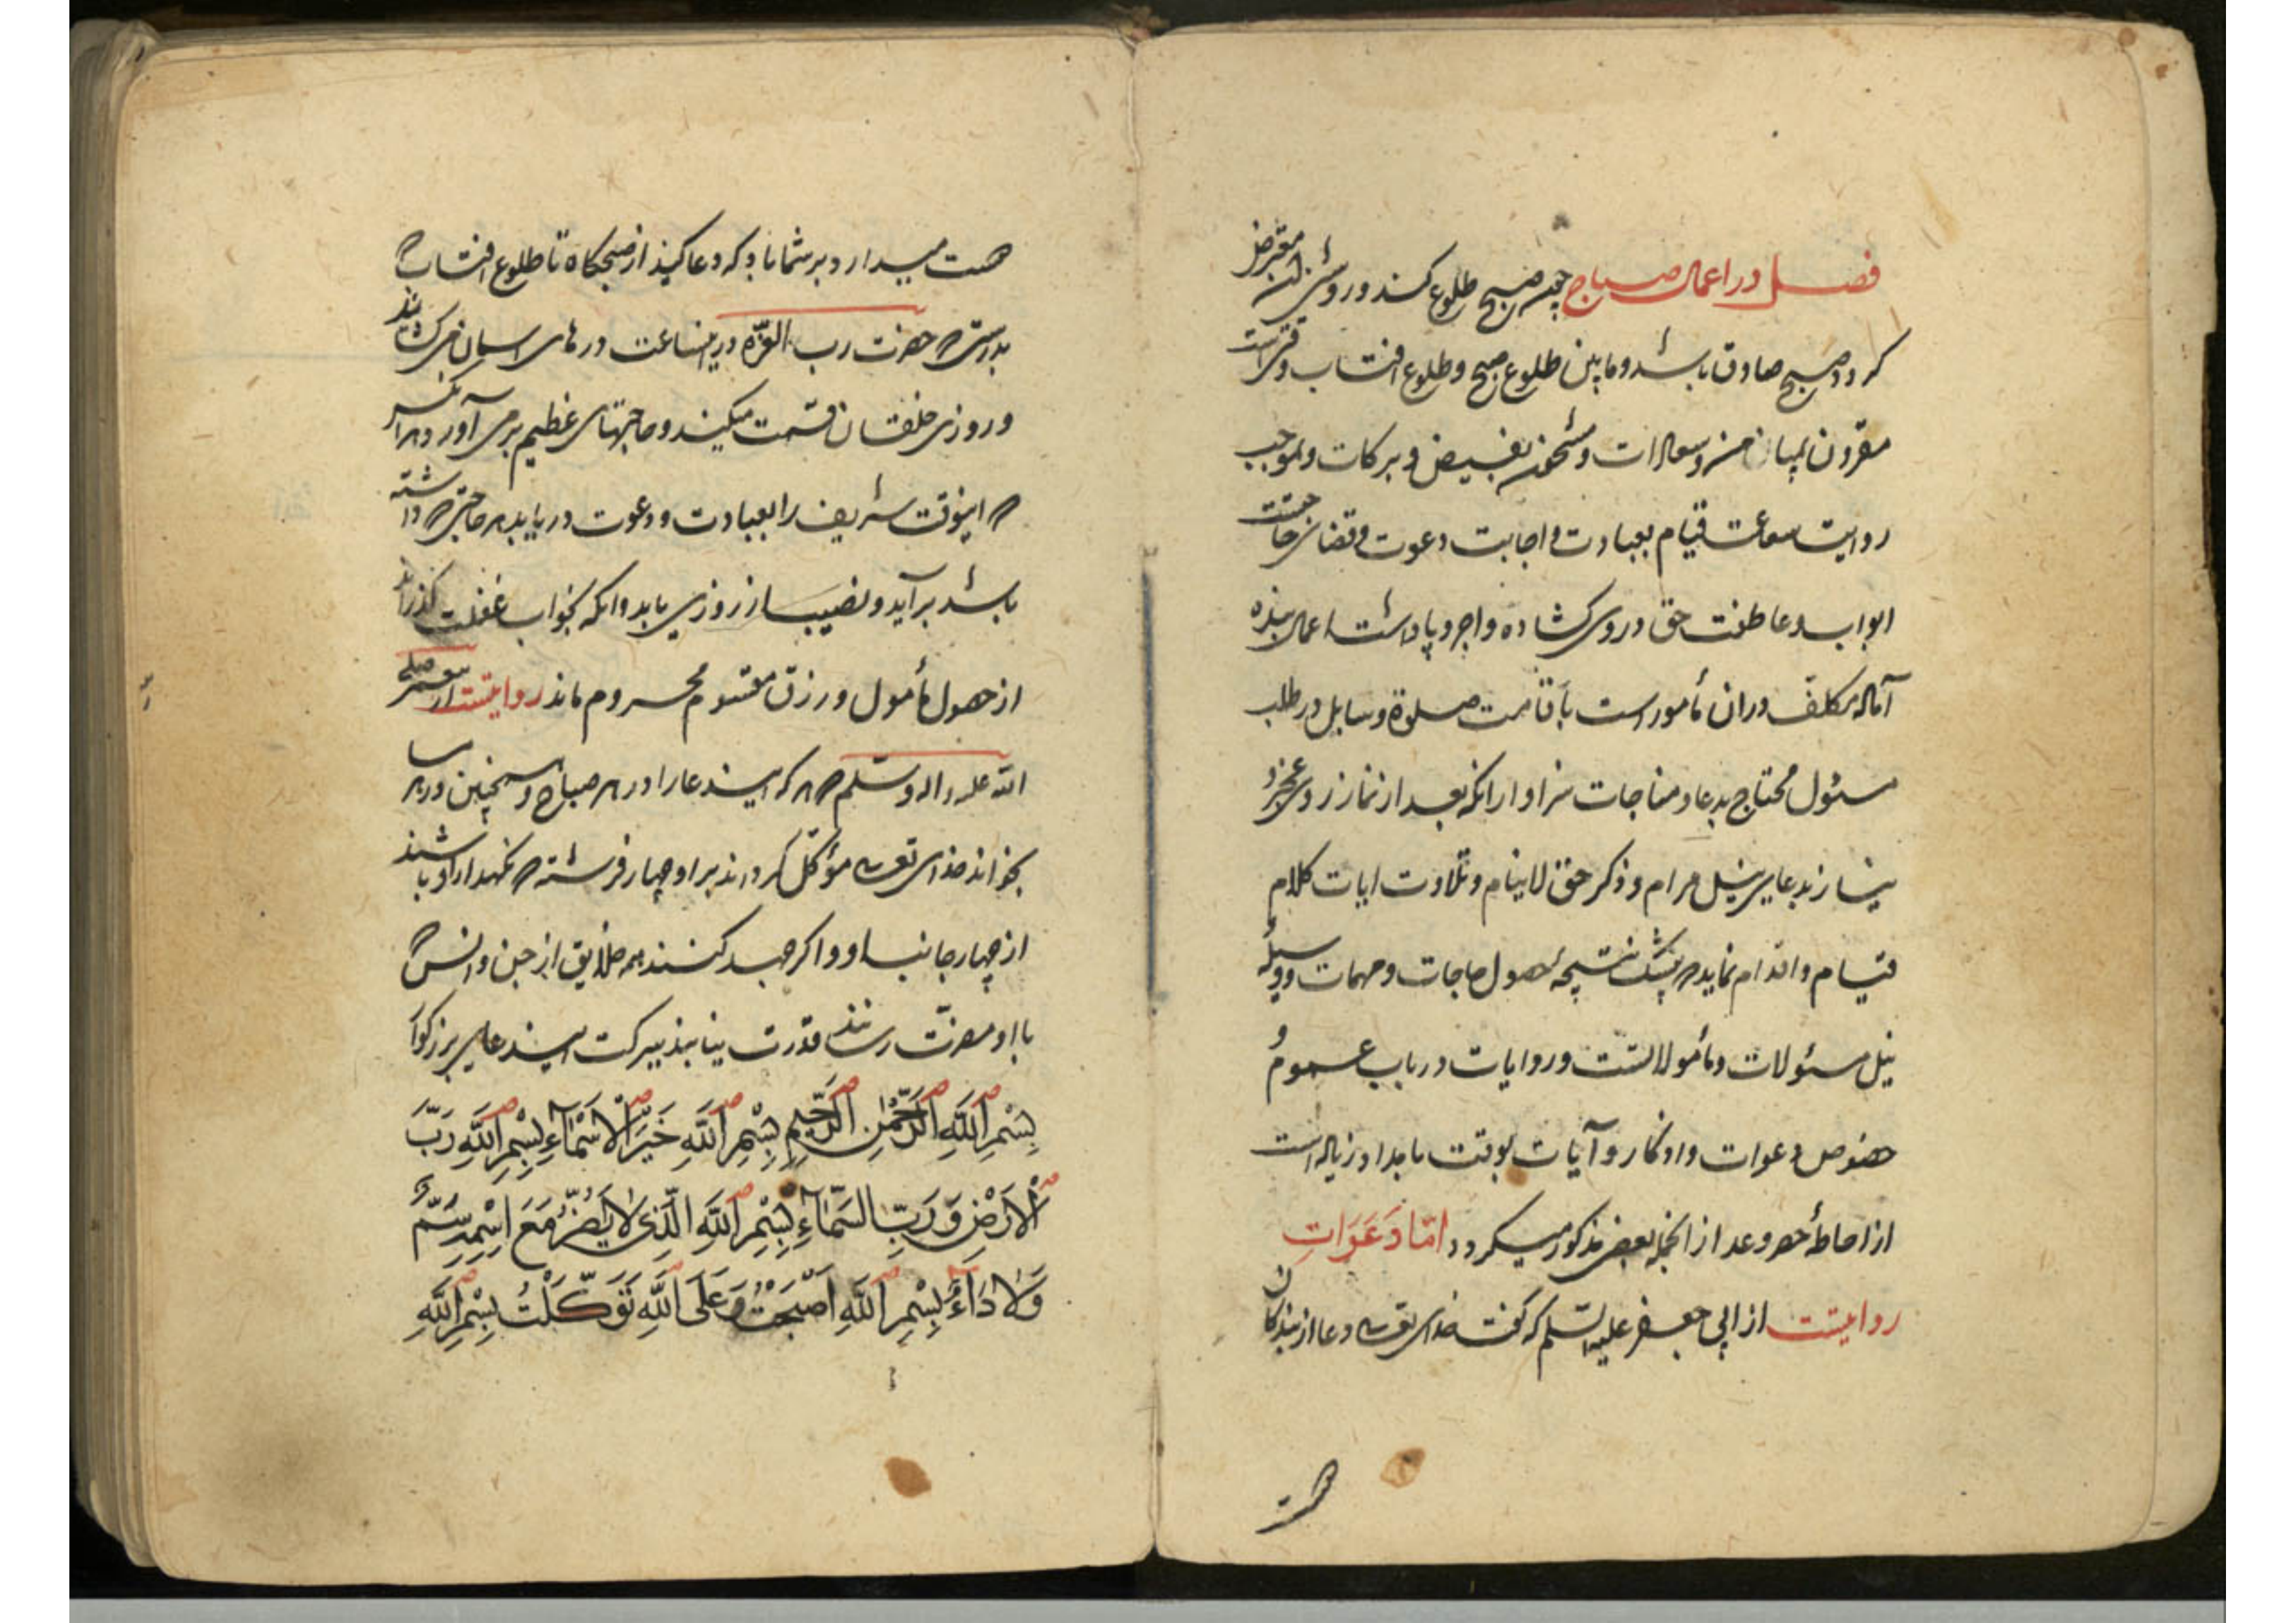 فصل در اعمال صباح چون صبح طلوع کند و روشنی آن معترض
کردد صبح صادق باشد و ما بین طلوع صبح و طلوع افتاب وقتی است
مقرون و سعادات و مشحون بفیض و برکات و بموجب
روایت ساعت قیام بعبادت و اجابت دعوت و قضای حاجتست
ابواب عاطفت حق در وی کشاده و اجر و پاداشت اعمال بنده
آماده مکلف در ان مأمور است بأقامت صلوة و سایل در طلب
مسئول محتاج بدعا و مناجات سزاوار انکه بعد از نماز از روی عجز و
نیاز بدعای نیل مرام و ذکر حق لاینام و تلاوت ایات کلام
قیام و اقدام نماید که بیشک نتیجهٔ حصول حاجات و مهمات و وسیلهٔ
نیل مسئولات و مأمولاتست و روایات در باب عموم و
خصوص دعوات و اذکار و آیات بوقت بامداد زیاده است
از احاطهٔ حصر و عد از انجمله بعضی مذکور میکردد امّا دَعَوَاتِ
روایتست از ابی جعفر علیه السلم که کفت خدای تعالی دعا از بندکان
دوست میدارد بر شما باد که دعا کنید از صبحکاه تا طلوع افتاب که
بدرستی که حضرت رب العزّه در این ساعت درهای اسمان می کشاید
و روزی خلقان قسمت میکند و حاجتهای عظیم بر می آورد هر انکس
که اینوقت شریف را بعبادت و دعوت دریابد هر حاجتی که داشته
باشد برآید و نصیب از روزی یابد و انکه بخواب غفلت کذراند
از حصول مأمول و رزق مقسوم محروم ماند روایتست از پیغمبر صلی
الله علیه و اله و سلم که هر که این دعا را در هر صباح و همچنین در هر مسا
بخواند خدای تعالی مؤکّل کرداند بر او چهار فرشته که نکهدار او باشند
از چهار جانب او و اکر جهد کنند همه خلایق از جن و انس که
با او مضرّت رسانند قدرت نیابند ببرکت این دعای بزرکوار
بِسْمِ اللَّهِ الرَّحْمٰنِ الرَّحِيمِ بِسْمِ اللَّهِ خَيْرِ الْاَسْمَآءِ بِسْمِ اللَّهِ رَبِّ
الْاَرْضِ وَ رَبِّ السَّمَآءِ بِسْمِ اللَّهِ الَّذِى لَا يَضُرُّ مَعَ اِسْمِهِ سَمٌّ
وَلَا دَآءٌ بِسْمِ اللَّهِ اَصْبَحْتُ وَ عَلَى اللَّهِ تَوَكَّلْتُ بِسْمِ اللَّهِ